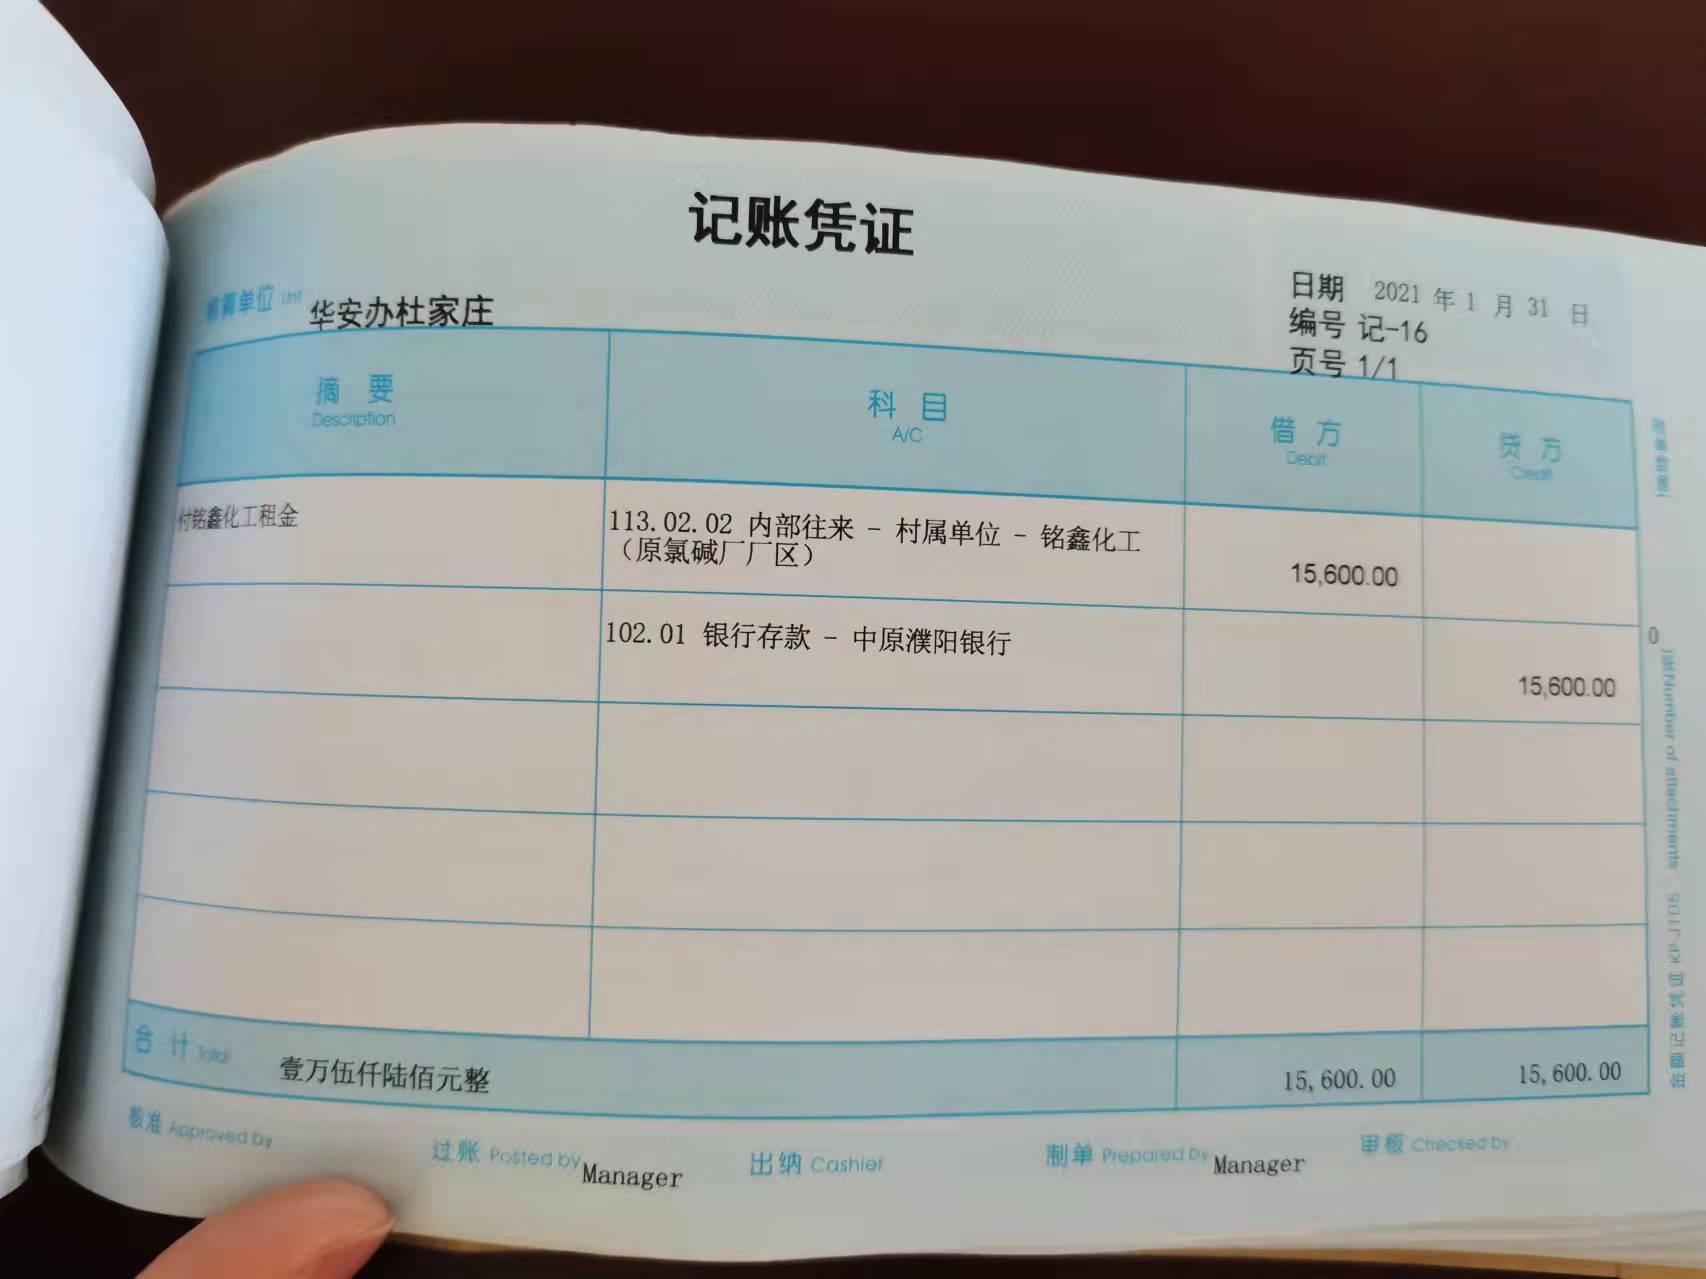 记账凭证
核算单位 Unit 华安办杜家庄
日期 2021 年 1 月 31 日
编号 记-16
页号 1/1
摘 要 科 目 借 方 贷 方
Description A/C Debit Credit
付铭鑫化工租金 113.02.02 内部往来 - 村属单位 - 铭鑫化工
（原氯碱厂厂区） 15,600.00
102.01 银行存款 - 中原濮阳银行 15,600.00
合 计 Total 壹万伍仟陆佰元整 15,600.00 15,600.00
核准 Approved by 过账 Posted by Manager 出纳 Cashier 制单 Prepared by Manager 审核 Checked by
附单据数
0
Number of attachments
金额记账凭证 KPJ109